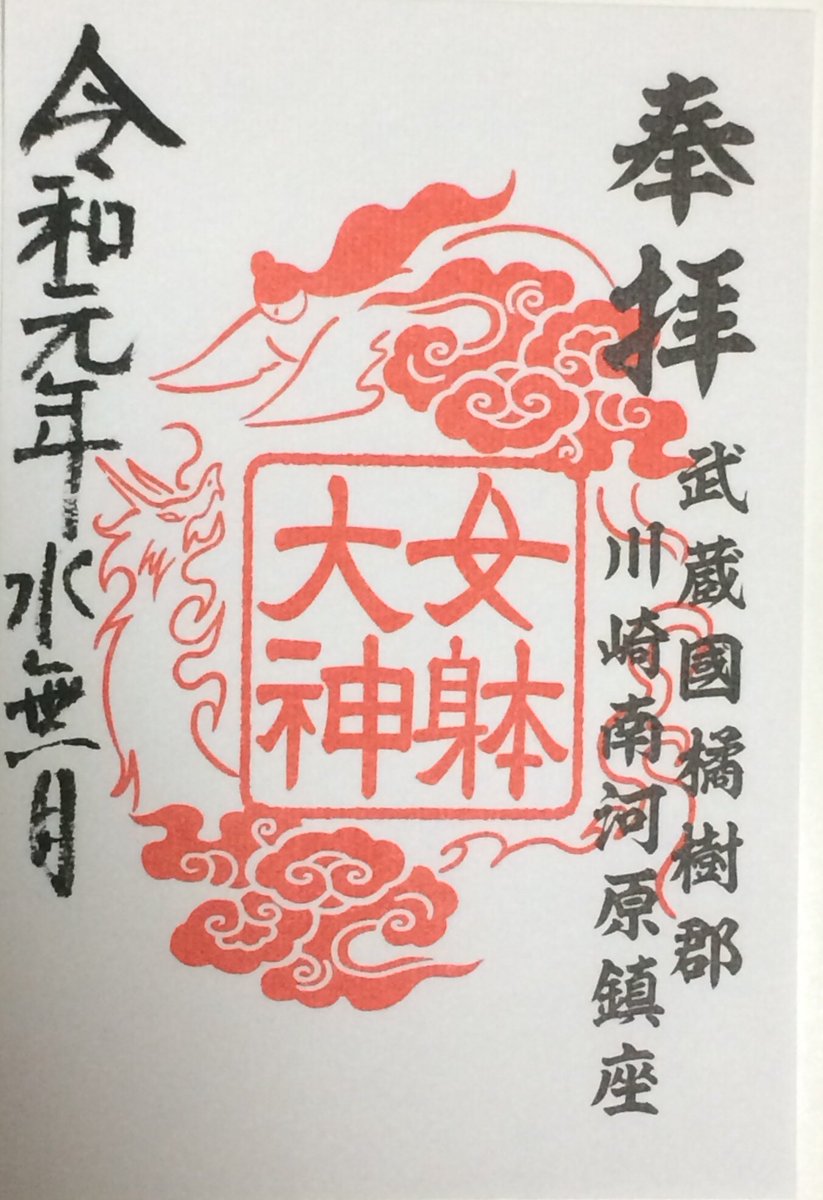 奉拝
武蔵國橘樹郡
川崎南河原鎮座
女躰
大神
令和元年水無月